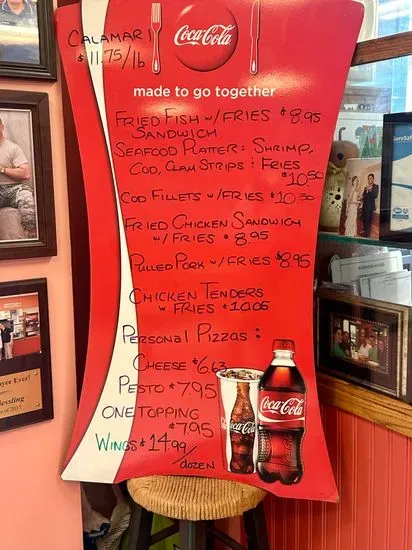 CALAMARI
$11.75/lb
Coca-Cola
made to go together
FRIED FISH w/FRIES $8.95
SANDWICH
SEAFOOD PLATTER: SHRIMP,
COD, CLAM STRIPS: FRIES
$10.50
COD FILLETS w/FRIES $10.50
FRIED CHICKEN SANDWICH
w/ FRIES $8.95
PULLED PORK w/FRIES $8.95
CHICKEN TENDERS
w/ FRIES $10.05
PERSONAL PIZZAS:
CHEESE $6.63
PESTO $7.95
ONE TOPPING
$7.95
WINGS $14.99
/DOZEN
Coca-Cola
Coca-Cola
yee Ever!
of 2017